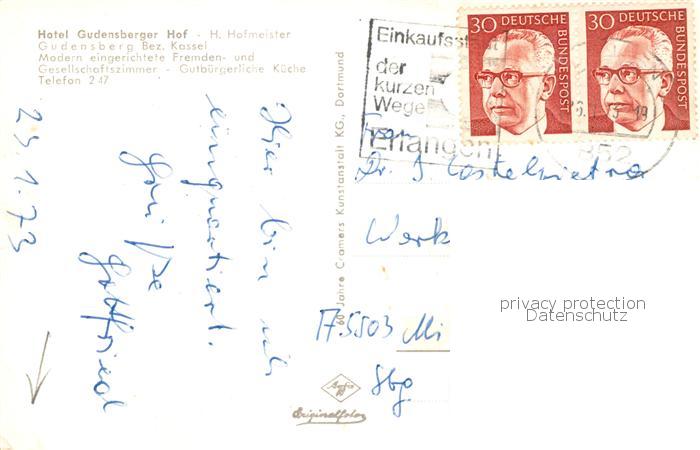 Hotel Gudensberger Hof - H. Hofmeister
Gudensberg Bez. Kassel
Modern eingerichtete Fremden- und
Gesellschaftszimmer - Gutbürgerliche Küche
Telefon 2 47
29.1.73
Hier bin ich
einquartiert.
Grüße
Gottfried
60 Jahre Cramers Kunstanstalt KG., Dortmund
Einkaufsstadt
der
kurzen
Wege
Erlangen
852
30 DEUTSCHE BUNDESPOST
30 DEUTSCHE BUNDESPOST
Frau
Dr. J Castelpietra
Werk
Mi
Sbg
privacy protection
Datenschutz
Originalfoto